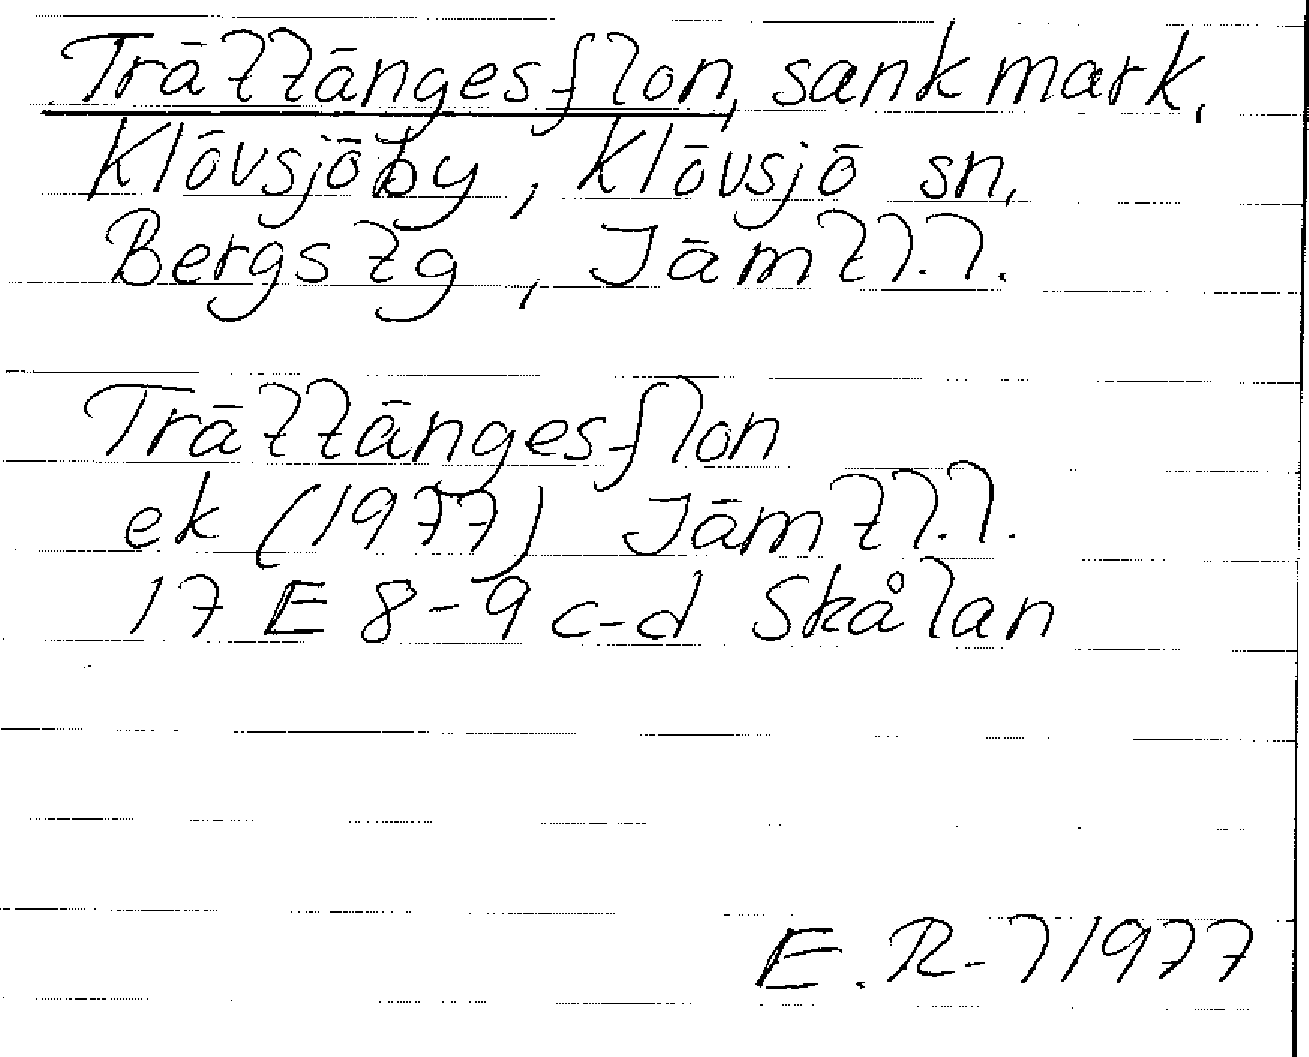 Trättängesflon, sankmark,
Klövsjöby, Klövsjö sn,
Bergs tg, Jämtl.l.
Trättängesflon
ek (1977) Jämtl.l.
17 E 8-9 c-d Skålan
E. R-l 1977